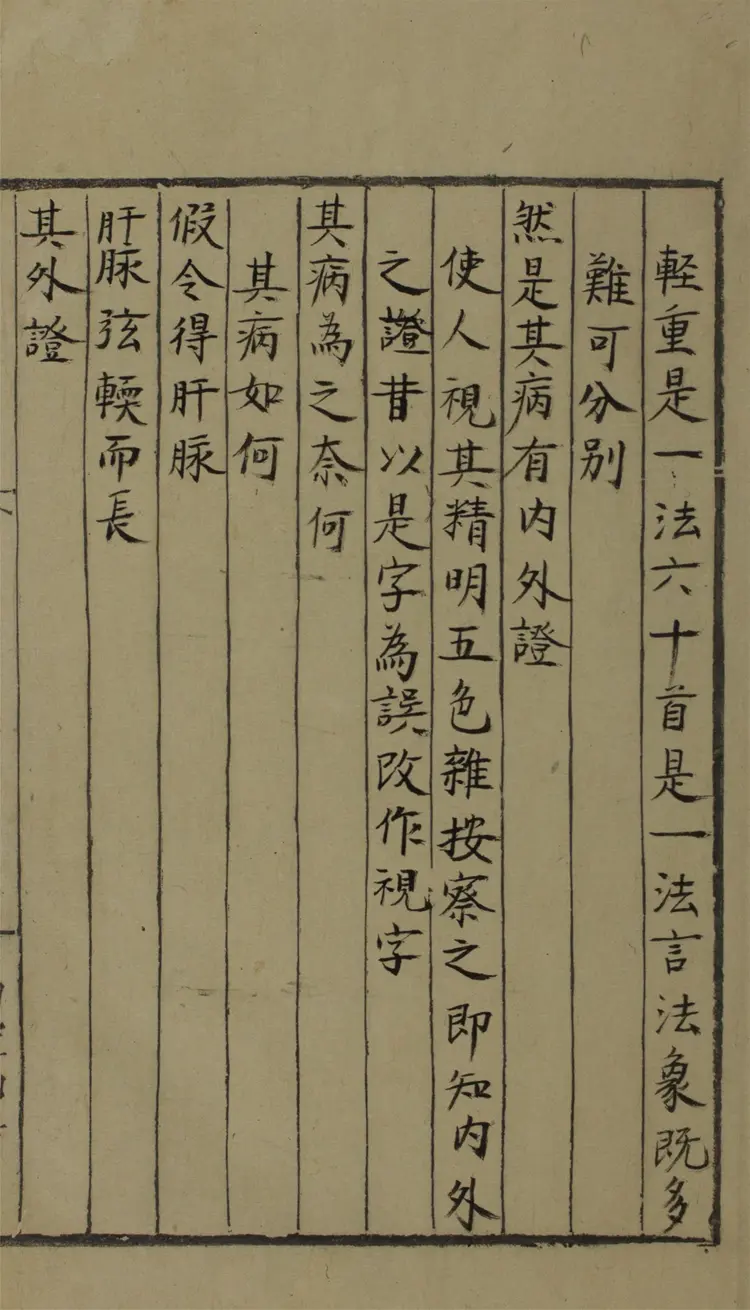 軽重是一法六十首是一法言法象既多
難可分别
然是其病有内外證
使人視其精明五色雜按察之即知内外
之證昔以是字為誤改作視字
其病為之奈何
其病如何
假令得肝脉
肝脉弦輭而長
其外證